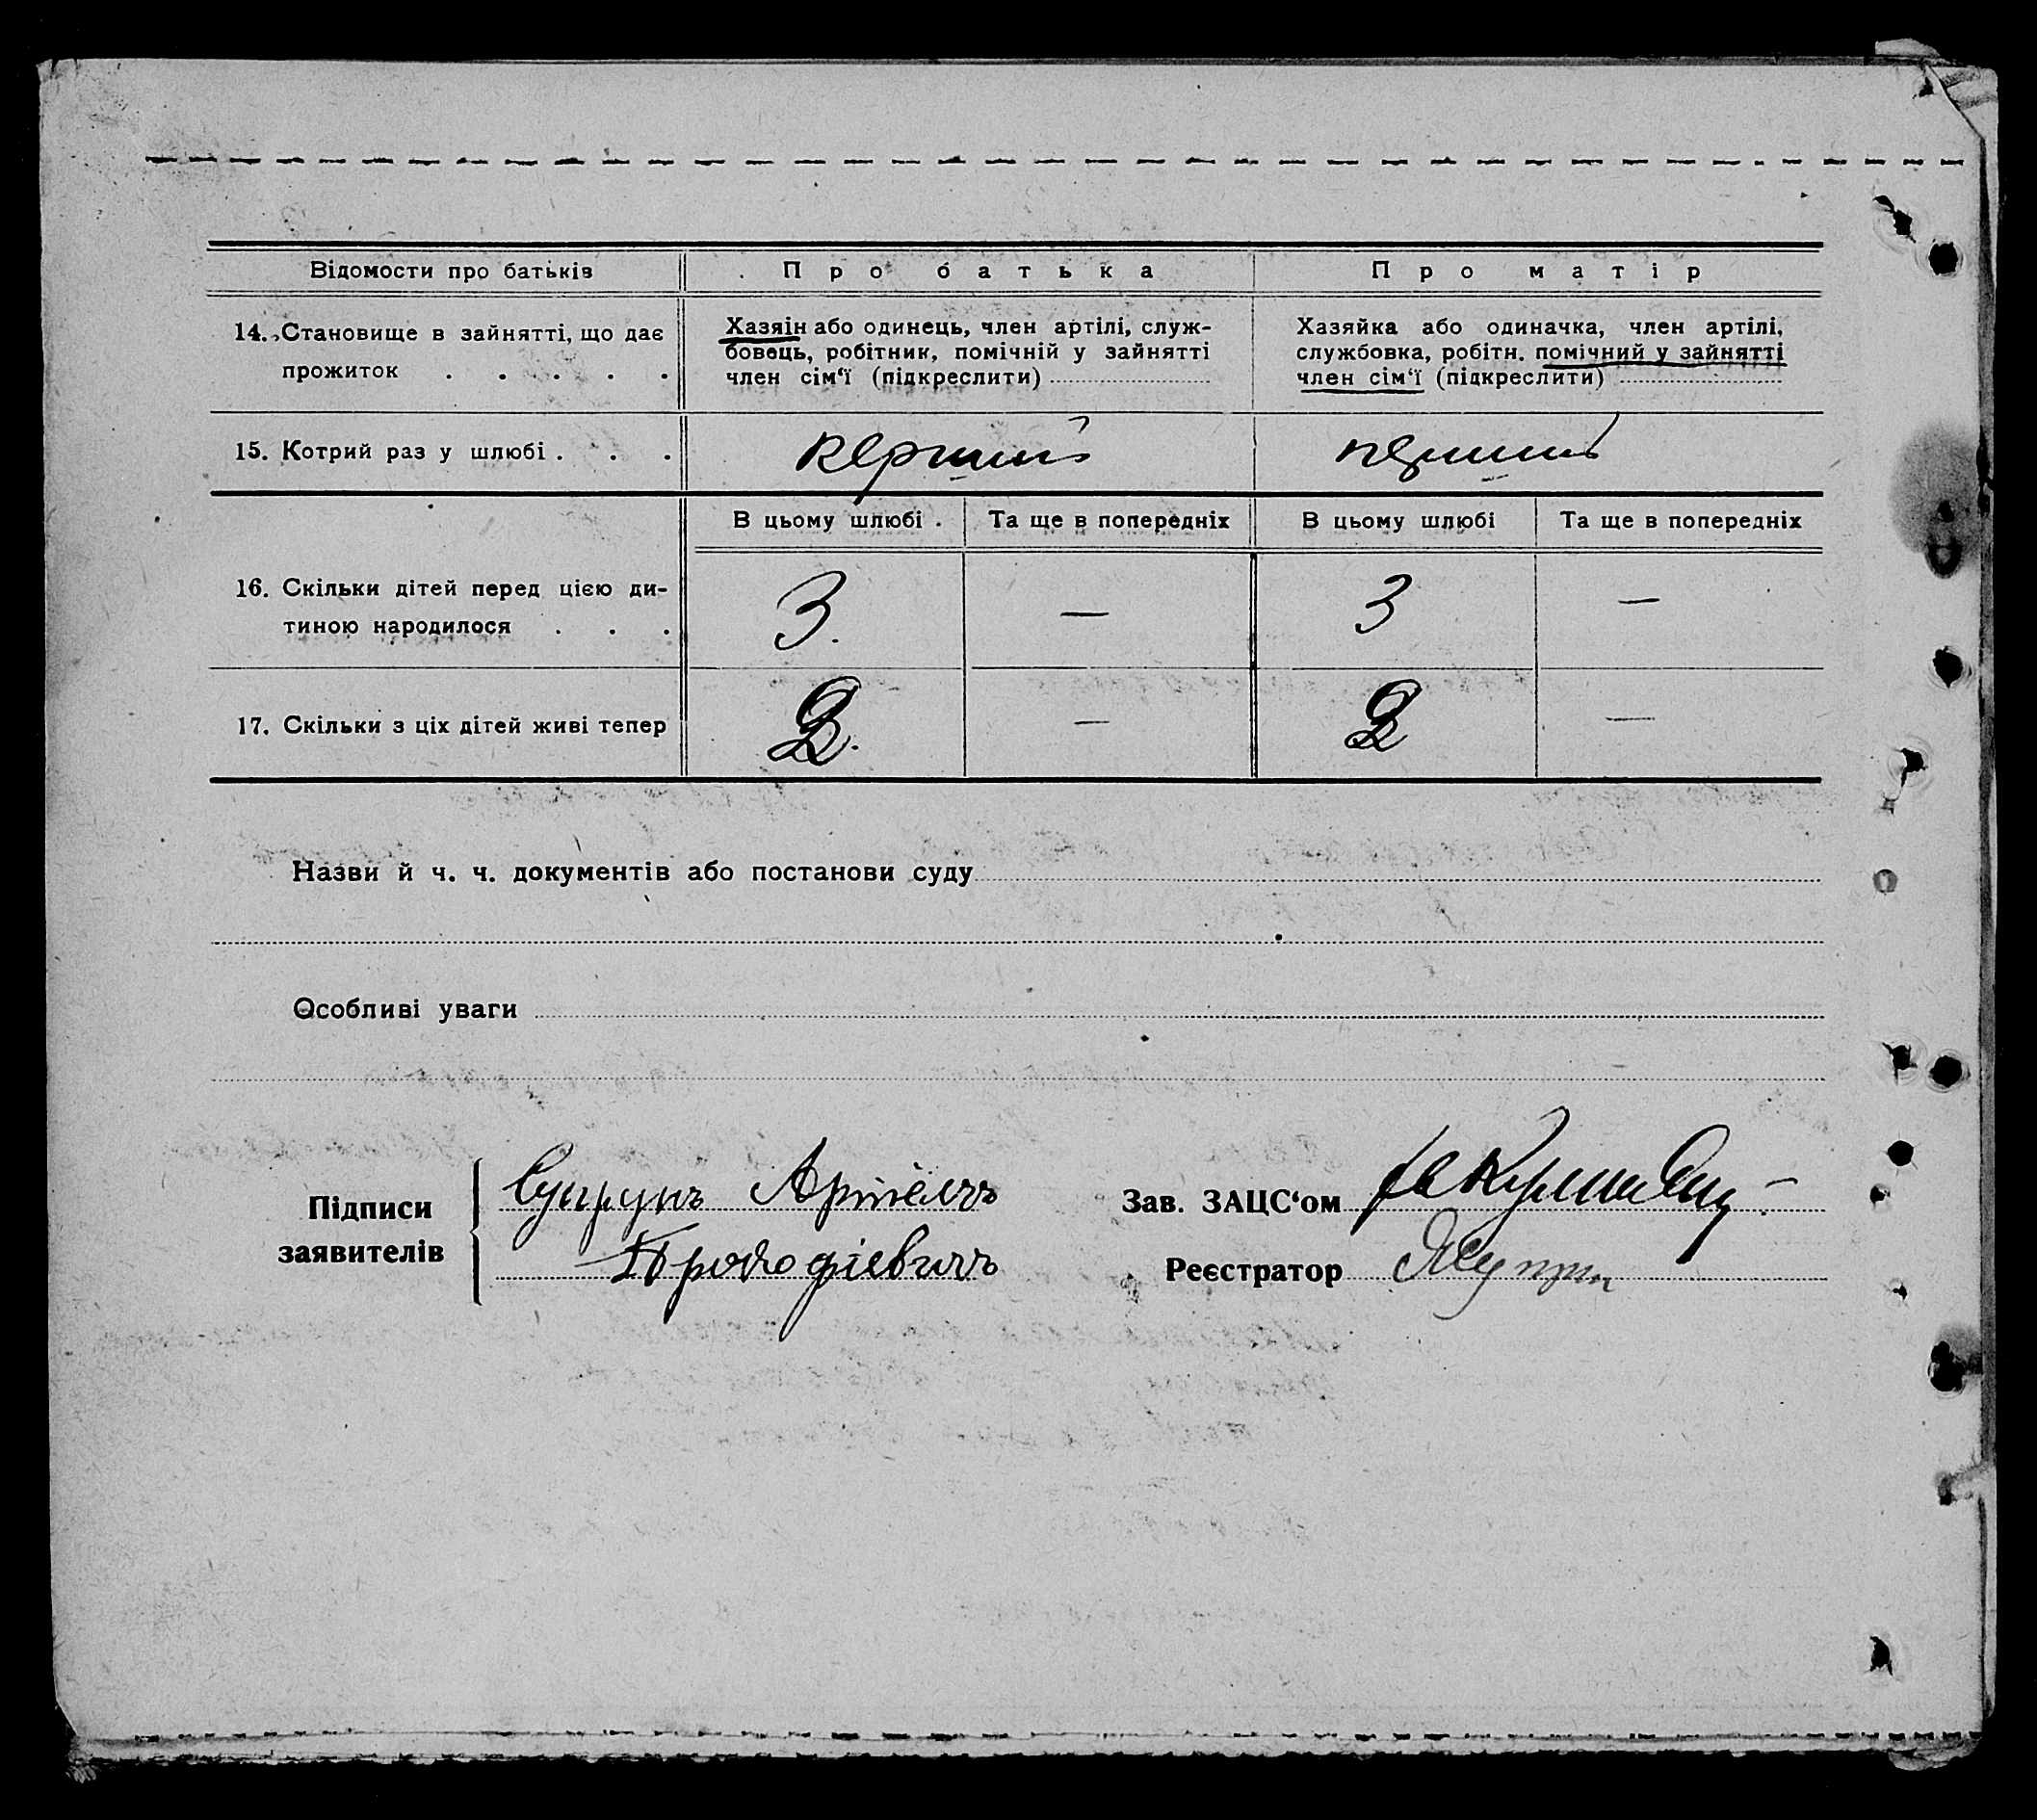 Відомости про батьків Про батька Про матір
14. Становище в зайнятті, що дає
прожиток . . . . .
Хазяїн або одинець, член артілі, служ-
бовець, робітник, помічній у зайнятті
член сім‘ї (підкреслити)
Хазяйка або одиначка, член артілі,
службовка, робітн. помічний у зайнятті
член сім‘ї (підкреслити)
15. Котрий раз у шлюбі . . . перший перший
В цьому шлюбі Та ще в попередніх В цьому шлюбі Та ще в попередніх
16. Скільки дітей перед цією ди-
тиною народилося . . .
3. — 3 —
17. Скільки з ціх дітей живі тепер 2. — 2 —
Назви й ч. ч. документів або постанови суду
Особливі уваги
Підписи
заявителів
Супрунъ
Зав. ЗАЦС‘ом
Реєстратор